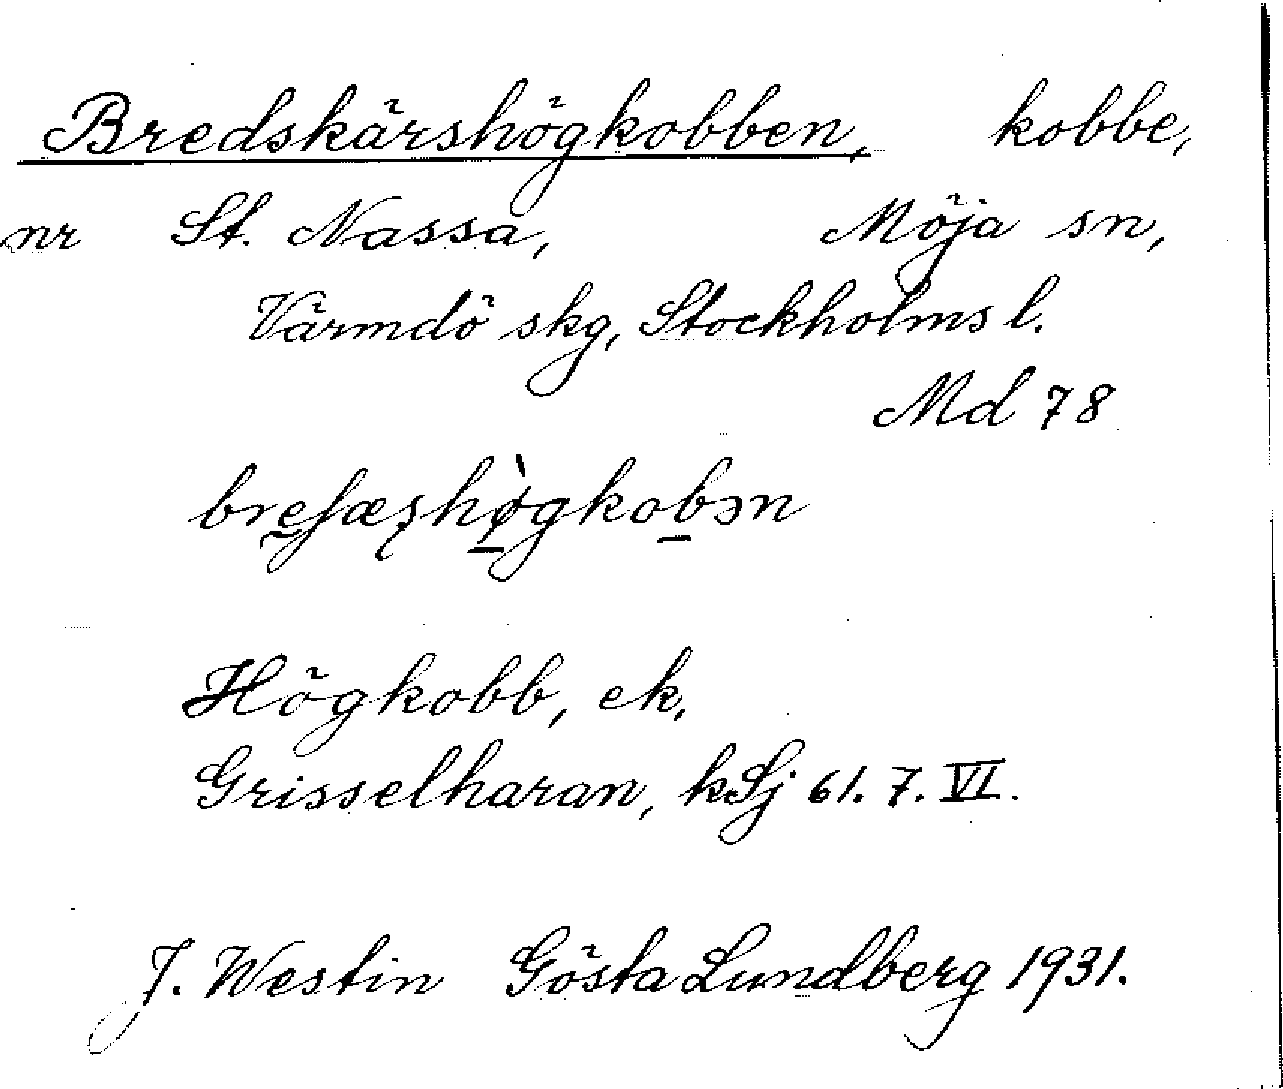 Bredskärshögkobben, kobbe,
nr St. Nassa, Möja sn,
Värmdö skg, Stockholms l.
Md 78
Högkobb, ek,
Grisselharan, kSj 61. 7. VI.
J. Westin Gösta Lundberg 1931.